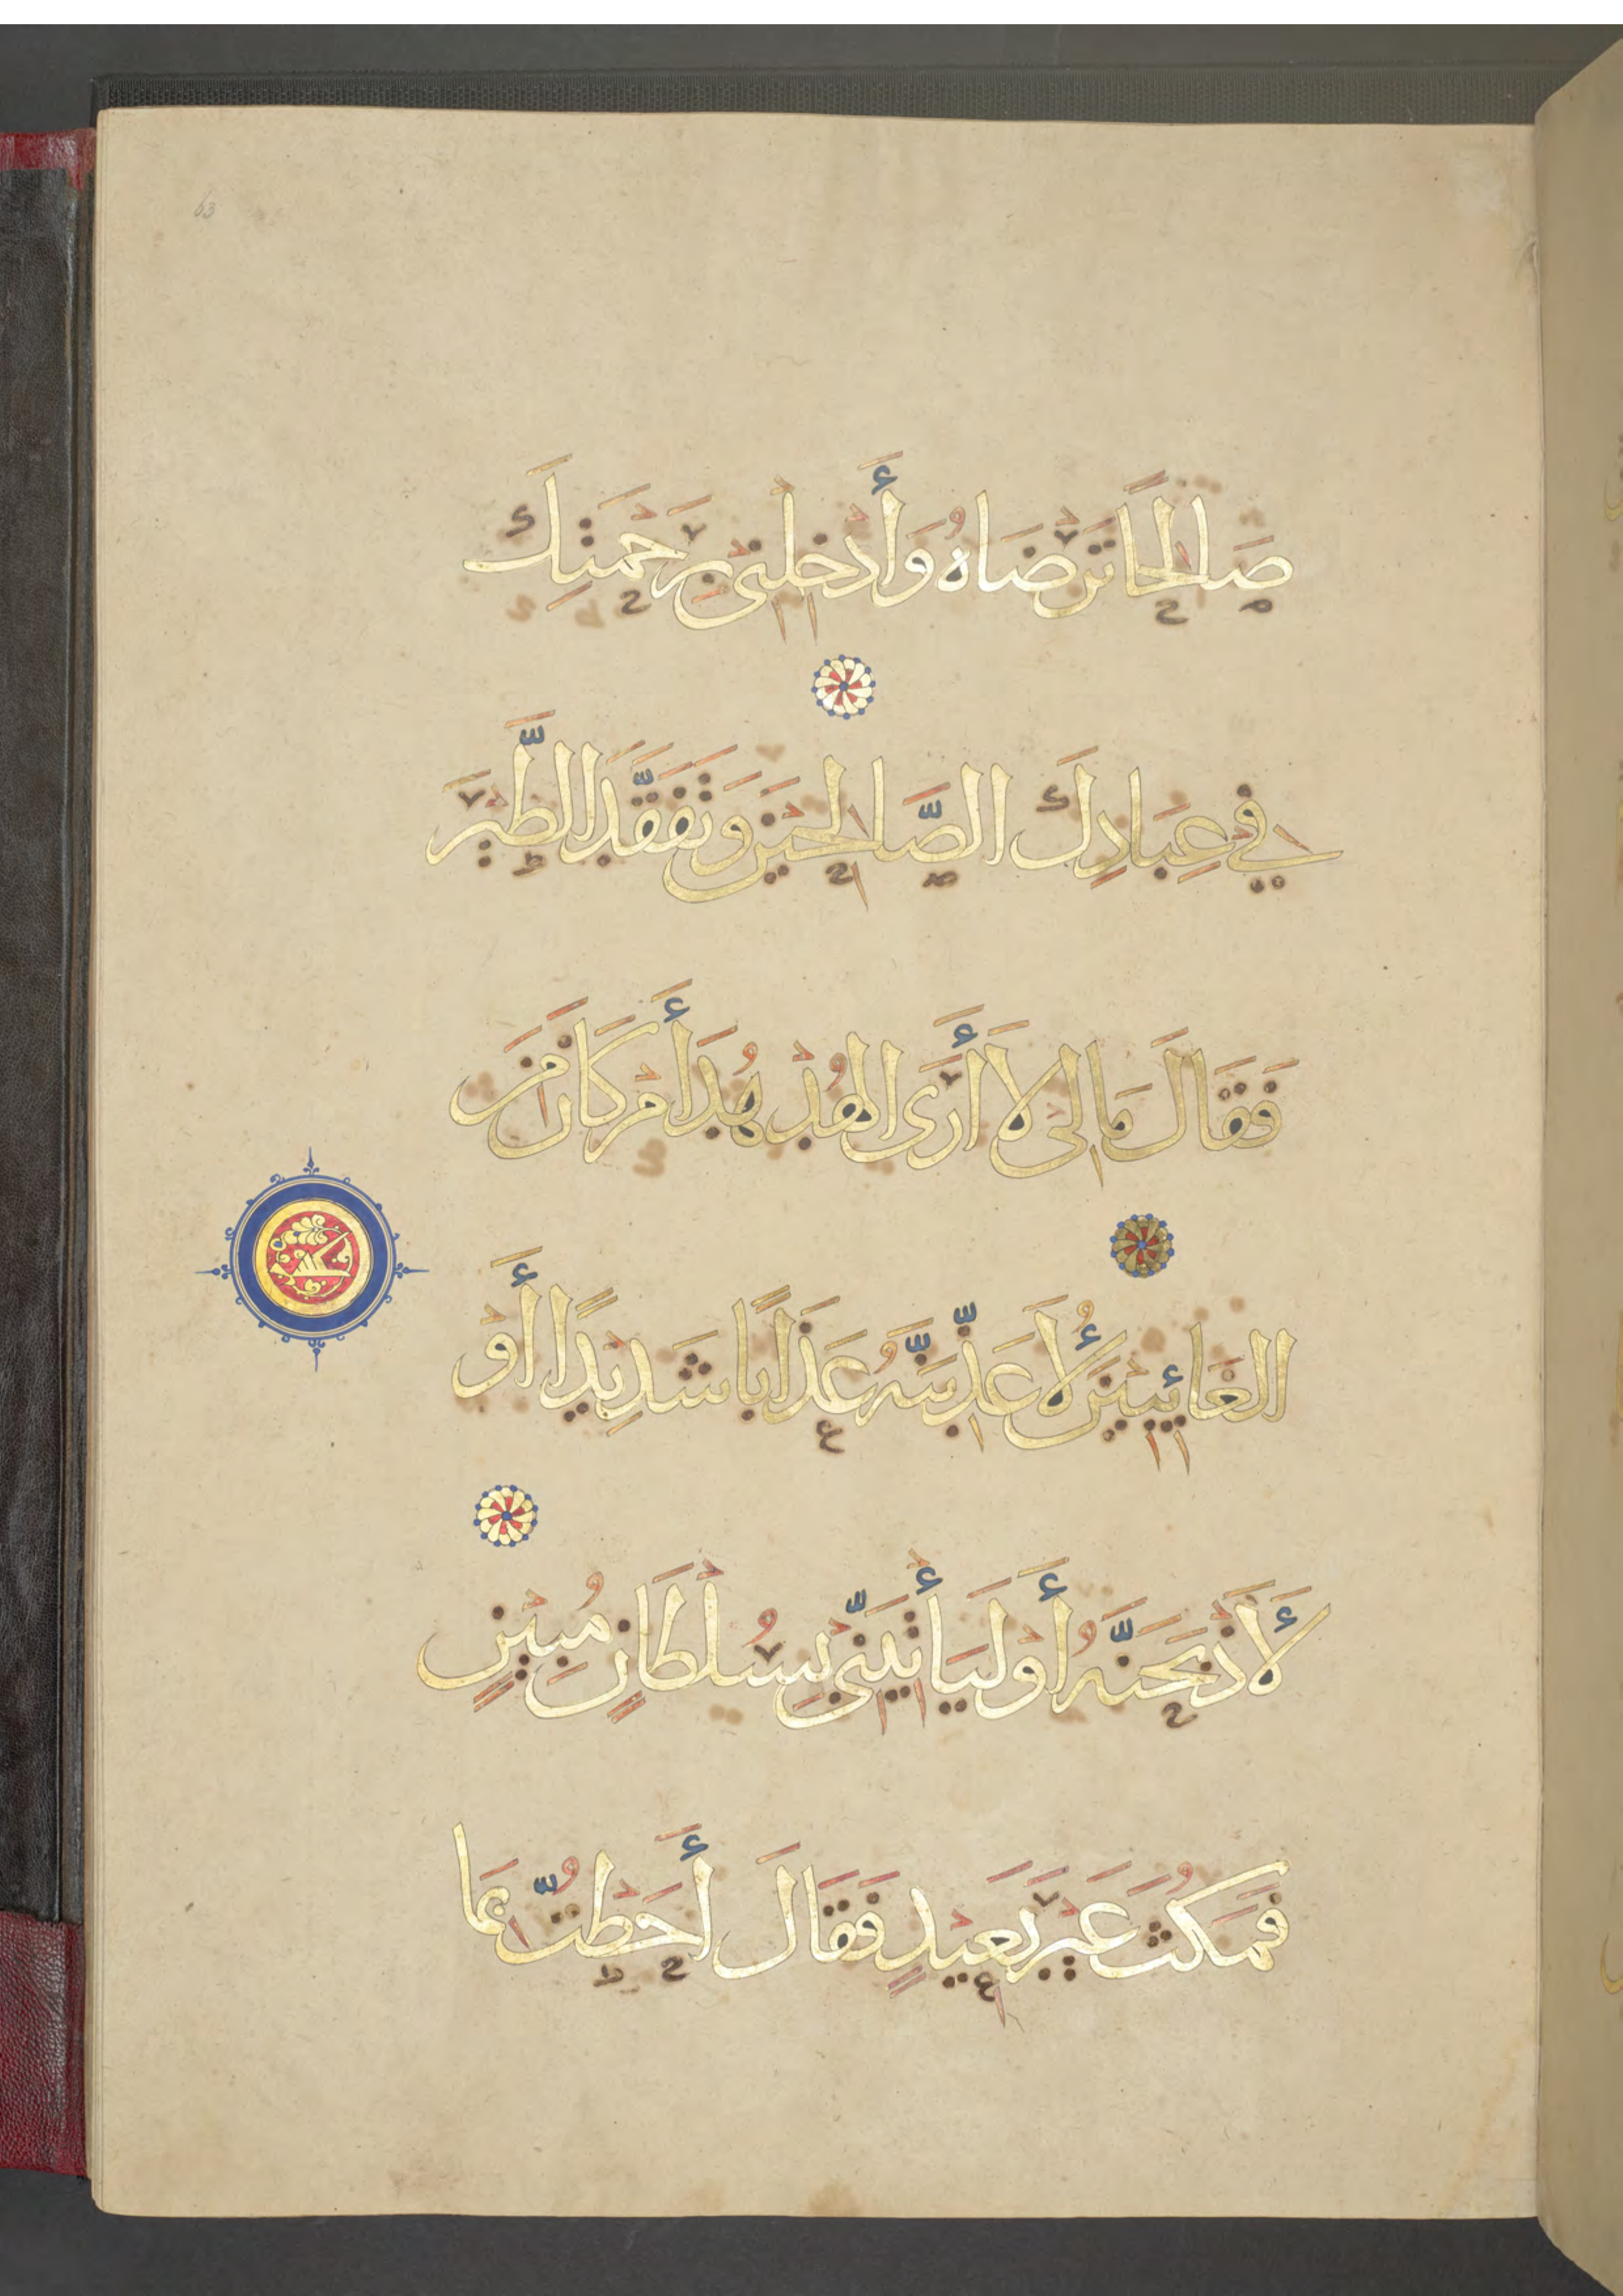 63
صَالِحًا تَرْضَاهُ وَأَدْخِلْنِي بِرَحْمَتِكَ
فِي عِبَادِكَ الصَّالِحِينَ وَتَفَقَّدَ الطَّيْرَ
فَقَالَ مَا لِيَ لَا أَرَى الْهُدْهُدَ أَمْ كَانَ مِنَ
الْغَائِبِينَ لَأُعَذِّبَنَّهُ عَذَابًا شَدِيدًا أَوْ
لَأَذْبَحَنَّهُ أَوْ لَيَأْتِيَنِّي بِسُلْطَانٍ مُبِينٍ
فَمَكُثَ غَيْرَ بَعِيدٍ فَقَالَ أَحَطْتُ بِمَا